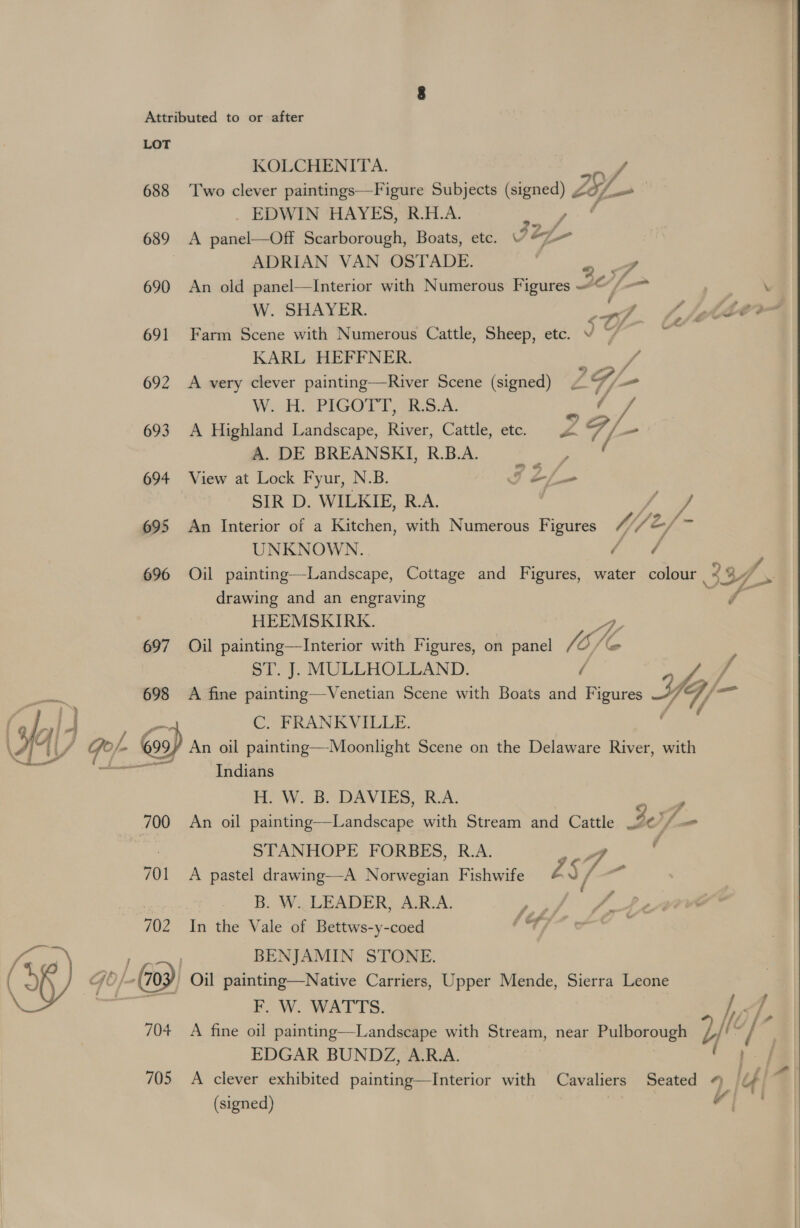 8
Attributed to or after
LOT
KOLCHENITA.
688 Two clever paintings—Figure Subjects (signed)
EDWIN HAYES, R.H.A.
689 A panel—Off Scarborough, Boats, etc. 32/-
ADRIAN VAN OSTADE.
690 An old panel—Interior with Numerous Figures
W. SHAYER.
691 Farm Scene with Numerous Cattle, Sheep, etc.
KARL HEFFNER.
692 A very clever painting—River Scene (signed)
W. H. PIGOTT, R.S.A.
693 A Highland Landscape, River, Cattle, etc.
A. DE BREANSKI, R.B.A.
694 View at Lock Fyur, N.B. 32/-
SIR D. WILKIE, R.A.
695 An Interior of a Kitchen, with Numerous Figures
UNKNOWN.
696 Oil painting—Landscape, Cottage and Figures, water colour
drawing and an engraving
HEEMSKIRK.
697 Oil painting—Interior with Figures, on panel
ST. J. MULLHOLLAND.
698 A fine painting—Venetian Scene with Boats and Figures
C. FRANKVILLE.
90/- 699 An oil painting—Moonlight Scene on the Delaware River, with
Indians
H. W. B. DAVIES, R.A.
700 An oil painting—Landscape with Stream and Cattle
STANHOPE FORBES, R.A.
701 A pastel drawing—A Norwegian Fishwife
B. W. LEADER, A.R.A.
702 In the Vale of Bettws-y-coed
BENJAMIN STONE.
90/- 703 Oil painting—Native Carriers, Upper Mende, Sierra Leone
F. W. WATTS.
704 A fine oil painting—Landscape with Stream, near Pulborough
EDGAR BUNDZ, A.R.A.
705 A clever exhibited painting—Interior with Cavaliers Seated
(signed)